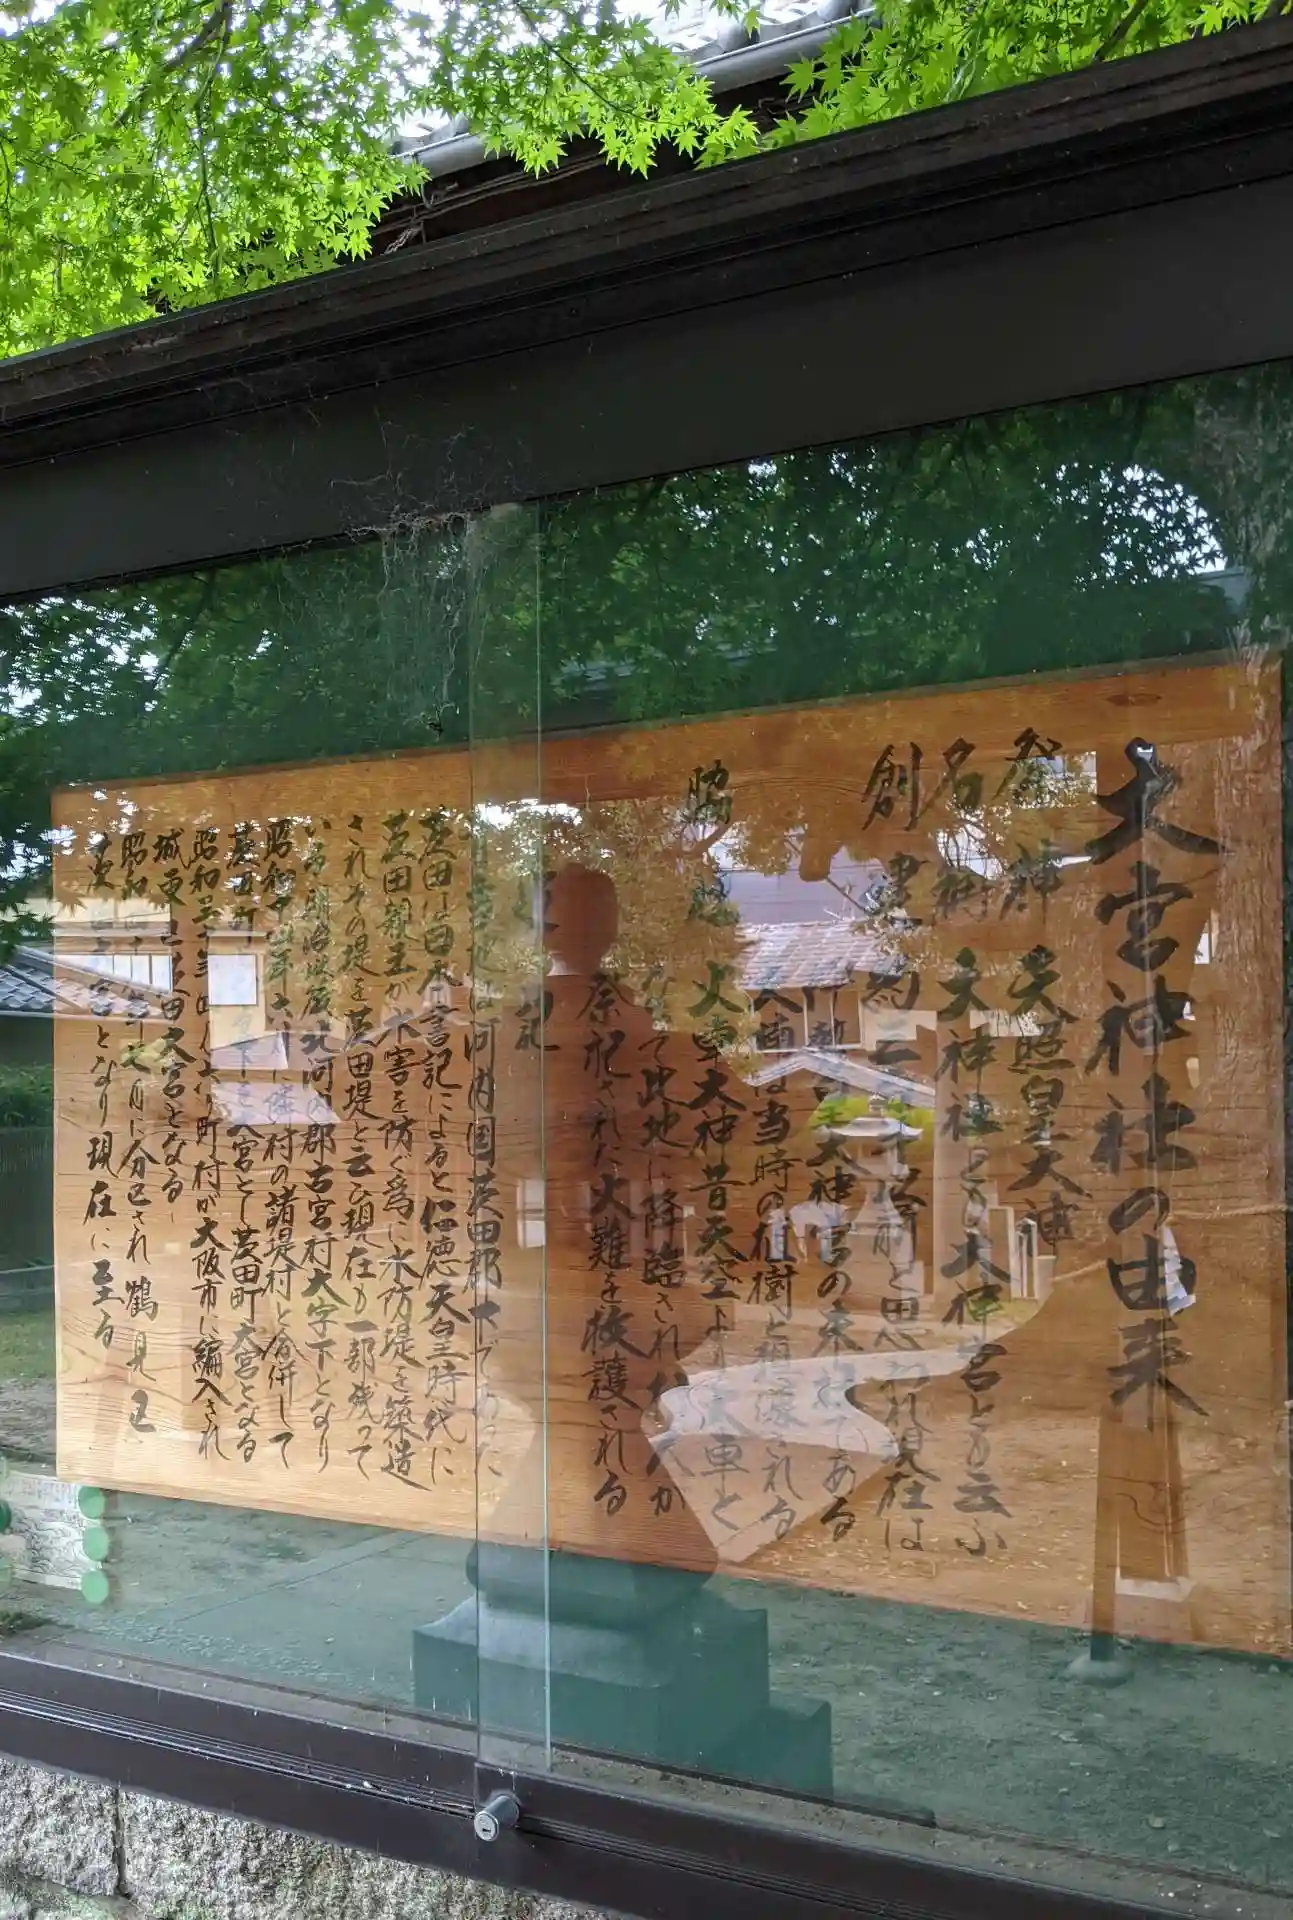 大宮神社の由来
祭神 天照皇大神
名称 天神社とも大神宮とも云ふ
創建 約二 年以前と思われ現在は
大神宮の末社である
は当時の植樹と推察される
脇 火車大神昔天空より火車と
て此地に降臨され
奈祀された火難を救護される
追記
は河内国茨田郡下であった
茨田は日本書記によると仁徳天皇時代に
茨田親王が水害を防ぐ為に水防堤を築造
されその堤を茨田堤と云ひ現在も一部残って
いる 北河内郡古宮村大字下となり
昭和 年六月に 村の諸堤村と合併して
茨田町 下を大宮とし茨田町大宮となる
昭和三十年 町村が大阪市に編入され
城東区茨田大宮となる
昭和四十九年七月に分区され鶴見区
茨田大宮となり現在に至る